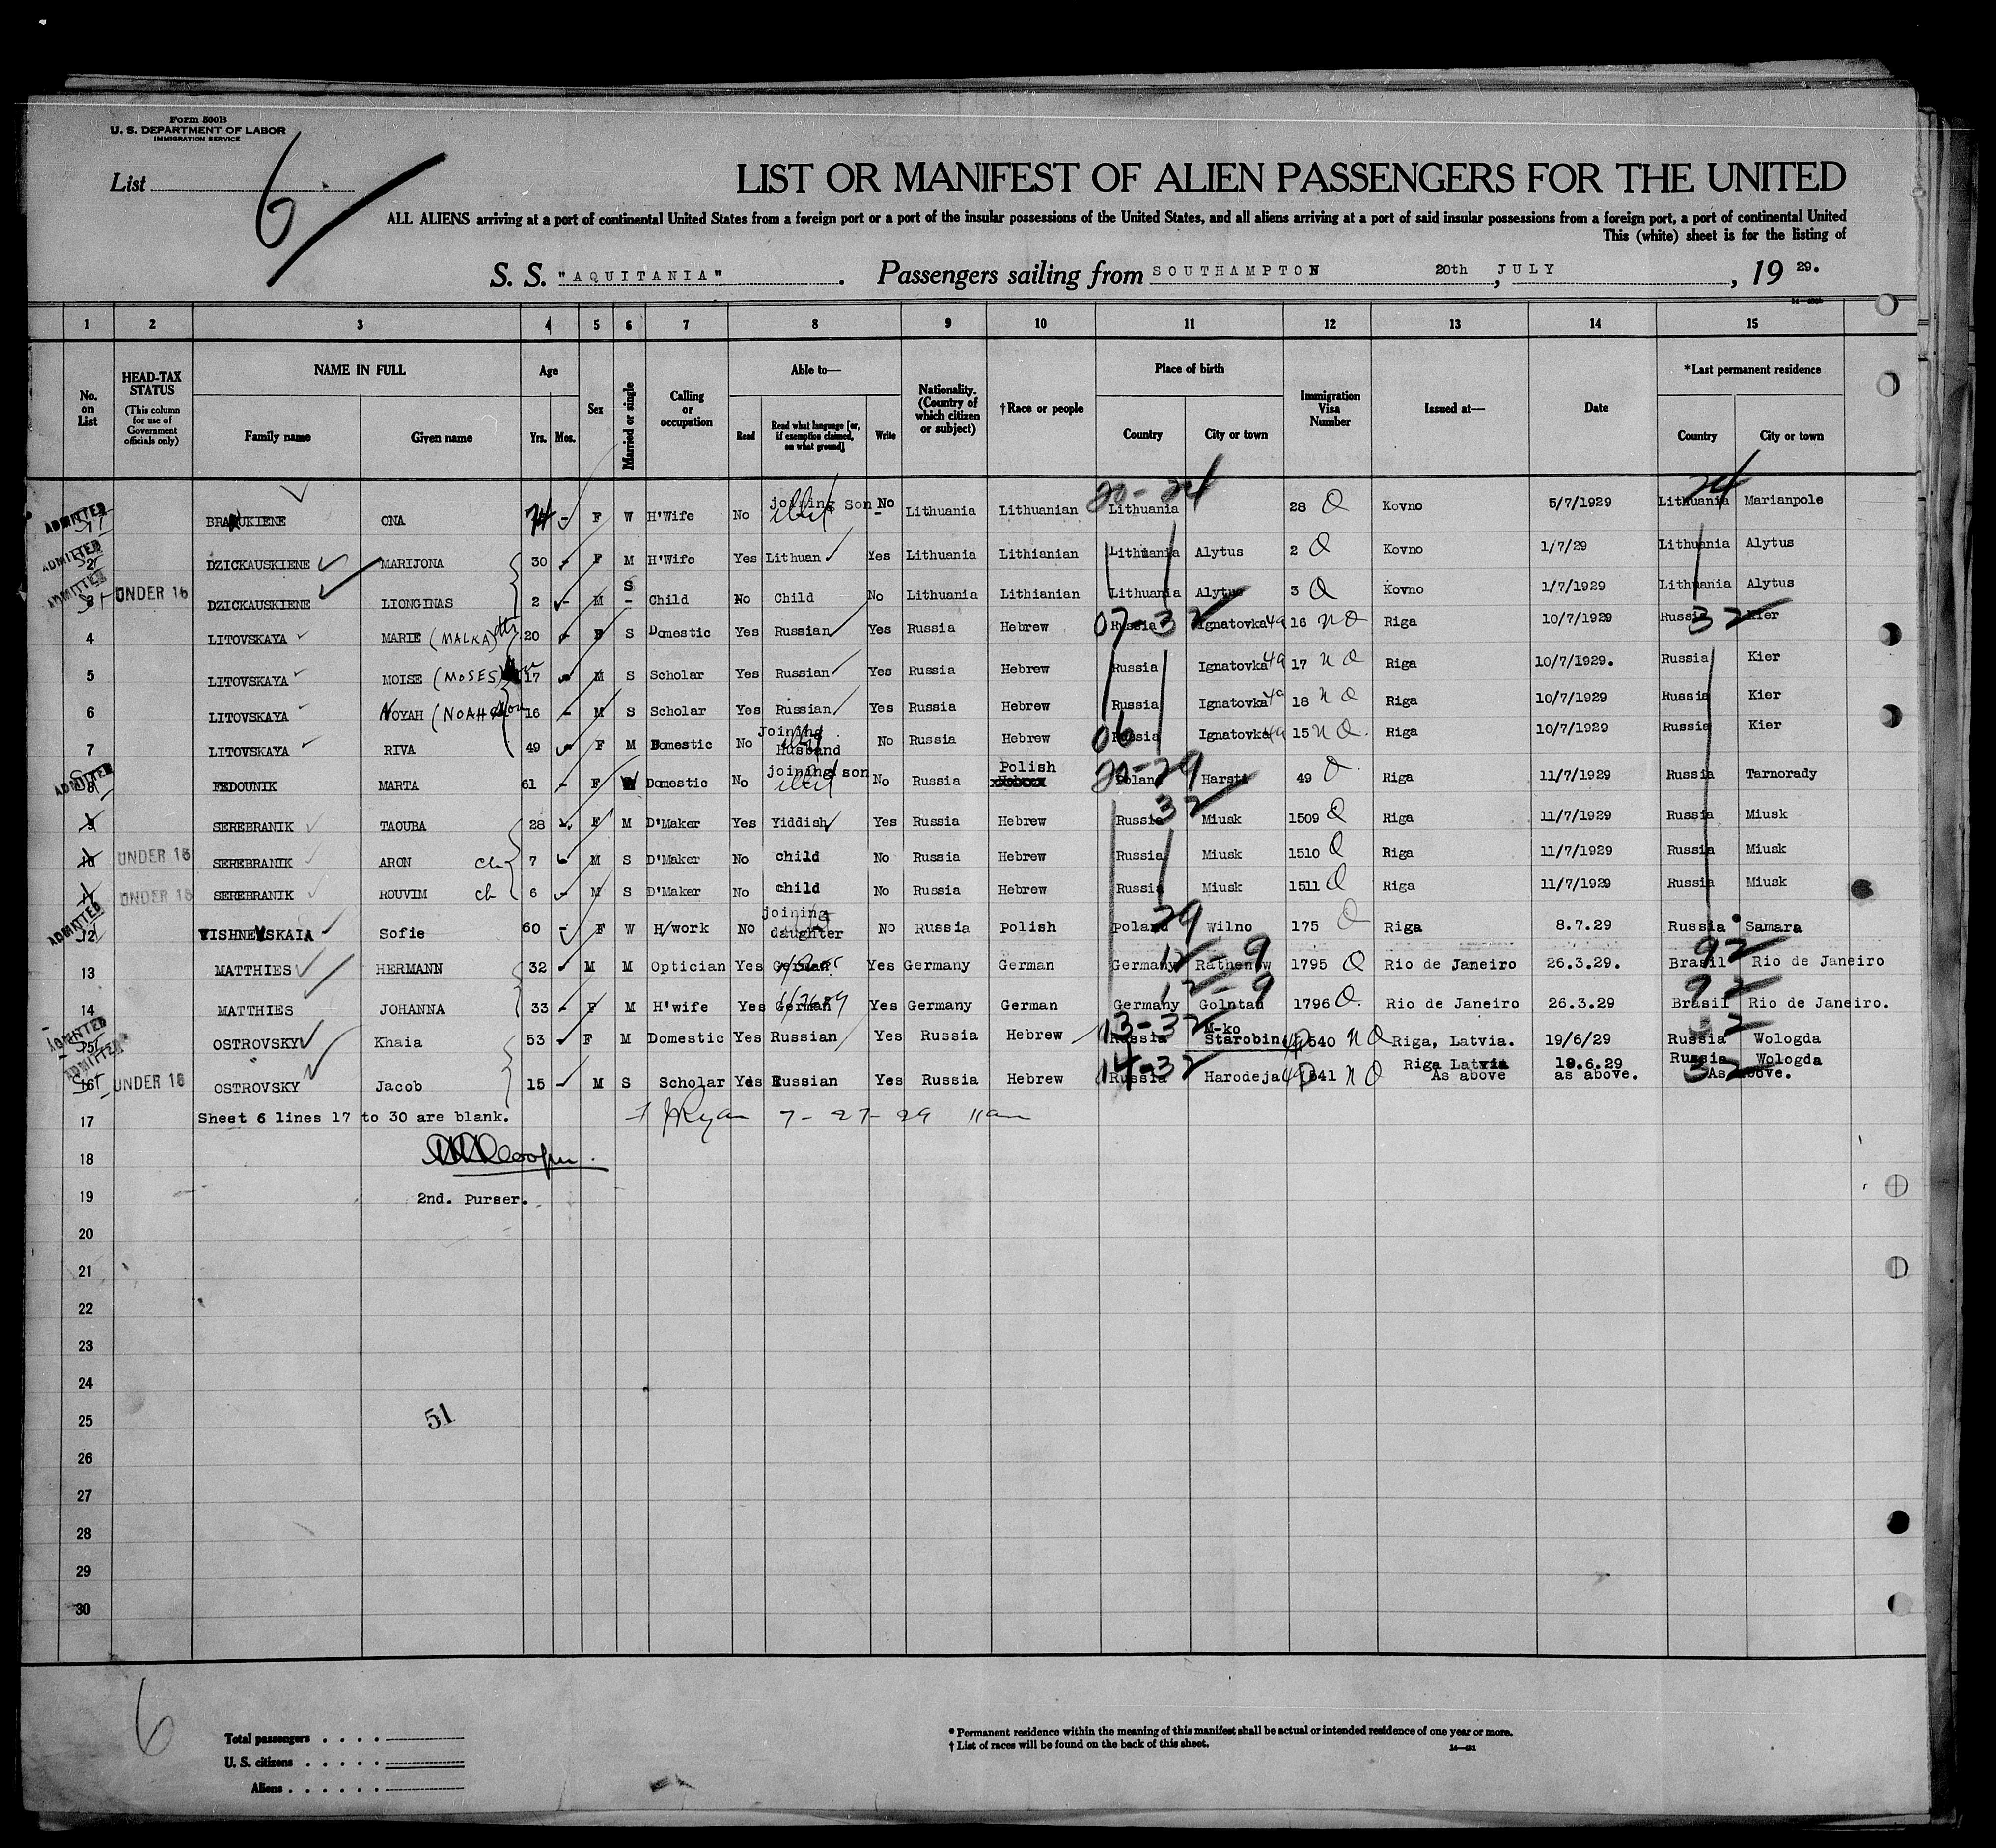 Form 500B
U. S. DEPARTMENT OF LABOR
IMMIGRATION SERVICE
List 6
LIST OR MANIFEST OF ALIEN PASSENGERS FOR THE UNITED
ALL ALIENS arriving at a port of continental United States from a foreign port or a port of the insular possessions of the United States, and all aliens arriving at a port of said insular possessions from a foreign port, a port of continental United
This (white) sheet is for the listing of
S. S. "AQUITANIA". Passengers sailing from SOUTHAMPTON 20th, JULY, 19 29.
1 2 3 4 5 6 7 8 9 10 11 12 13 14 15
No. on List
HEAD-TAX STATUS (This column for use of Government officials only)
NAME IN FULL Family name Given name
Age Yrs. Mos.
Sex
Married or single
Calling or occupation
Able to— Read Read what language [or, if exemption claimed, on what ground] Write
Nationality. (Country of which citizen or subject)
†Race or people
Place of birth Country City or town
Immigration Visa Number
Issued at—
Date
*Last permanent residence Country City or town
ADMITTED BRAZUKIENE ONA 74 - F W H'Wife No joining son No Lithuania Lithuanian 20-24 Lithuania 28 Kovno 5/7/1929 Lithuania 24 Marianpole
ADMITTED 2 DZICKAUSKIENE MARIJONA 30 - F M H'Wife Yes Lithuan Yes Lithuania Lithianian Lithuania Alytus 2 Kovno 1/7/29 Lithuania Alytus
ADMITTED 3 UNDER 16 DZICKAUSKIENE LIONGINAS 2 - M S Child No Child No Lithuania Lithianian Lithuania Alytus 3 Kovno 1/7/1929 Lithuania Alytus
4 LITOVSKAYA MARIE (MALKA) 20 - F S Domestic Yes Russian Yes Russia Hebrew 07-32 Russia Ignatovka 16 Riga 10/7/1929 Russia 32 Kier
5 LITOVSKAYA MOISE (MOSES) 17 M S Scholar Yes Russian Yes Russia Hebrew Russia Ignatovka 17 Riga 10/7/1929. Russia Kier
6 LITOVSKAYA NOYAH (NOAH) 16 - M S Scholar Yes Russian Yes Russia Hebrew Russia Ignatovka 18 Riga 10/7/1929 Russia Kier
7 LITOVSKAYA RIVA 49 F M Domestic No Joining Husband No Russia Hebrew 06 Russia Ignatovka 15 Riga 10/7/1929 Russia Kier
ADMITTED 8 FEDOUNIK MARTA 61 - F W Domestic No joining son No Russia Polish 20-29 Poland Harsta 49 Riga 11/7/1929 Russia Tarnorady
9 SEREBRANIK TAOUBA 28 F M D'Maker Yes Yiddish Yes Russia Hebrew 32 Russia Miusk 1509 Riga 11/7/1929 Russia Miusk
10 UNDER 16 SEREBRANIK ARON ch 7 M S D'Maker No child No Russia Hebrew Russia Miusk 1510 Riga 11/7/1929 Russia Miusk
11 UNDER 16 SEREBRANIK ROUVIM ch 6 - M S D'Maker No child No Russia Hebrew Russia Miusk 1511 Riga 11/7/1929 Russia Miusk
ADMITTED 12 VISHNEVSKAIA Sofie 60 - F W H/work No joining daughter No Russia Polish 29 Poland Wilno 175 Riga 8.7.29 Russia Samara
13 MATTHIES HERMANN 32 M M Optician Yes German Yes Germany German 12-9 Germany Rathenow 1795 Rio de Janeiro 26.3.29. 92 Brasil Rio de Janeiro
14 MATTHIES JOHANNA 33 - F M H'wife Yes German Yes Germany German 12-9 Germany Golntau 1796 Rio de Janeiro 26.3.29 92 Brasil Rio de Janeiro.
ADMITTED 15 OSTROVSKY Khaia 53 F M Domestic Yes Russian Yes Russia Hebrew 13-32 Russia M-ko Starobin 540 Riga, Latvia. 19/6/29 32 Russia Wologda
ADMITTED 16 UNDER 16 OSTROVSKY Jacob 15 M S Scholar Yes Russian Yes Russia Hebrew 14-32 Russia Harodeja 541 Riga Latvia As above 19.6.29 as above. 32 Russia Wologda As above.
17 Sheet 6 lines 17 to 30 are blank. Ryan 7-27-29 11am
18 Cooper.
19 2nd. Purser.
20
21
22
23
24
25 51
26
27
28
29
30
6
Total passengers . . . .
U. S. citizens . . . . .
Aliens . . . . . .
* Permanent residence within the meaning of this manifest shall be actual or intended residence of one year or more.
† List of races will be found on the back of this sheet.